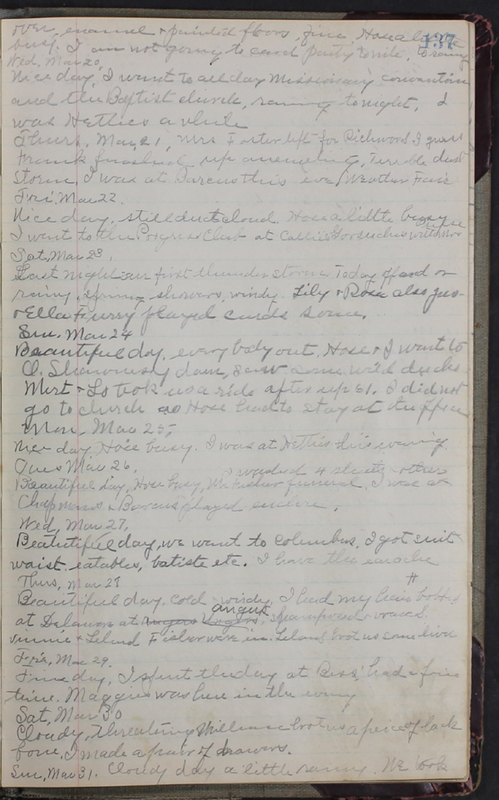 137
over, enamel & painted floors, fine, Hose
busy. I am not going to card party tonite, to rainy
Wed, Mar 20,
Nice day, I went to all day Missionary convention
and the Baptist church, raining tonight, I
was Netties awhile
Thurs, Mar 21, Mrs Foster left for Richwood I guess
Frank finished up Terrible dust
storm, I was at this eve, Weather Fair
Fri, Mar 22.
Nice day, still dust cloud Hose a little busy
I went to the Progress Club at Callie with
Sat, Mar 23.
Last night our first thunder storm Today off and on
rainy, Spring showers, windy. Lily & Rose also
& Ella played cards some.
Sun. Mar 24
Beautiful day, every body out, Hose & I went to
O. dam, saw some wild ducks
Mert & Lo took us a ride after up 61. I did not
go to church as Hose had to stay at the office
Mon, Mar 25,
Nice day Hose busy. I was at Netties this evening
Tues Mar 26, I washed 4 sheets & other
Beautiful day, Hose busy, Mr funeral, I was at
Chapmans & played euchre.
Wed, Mar 27,
Beautiful day, we went to Columbus, I got suit
waist eatables, batiste etc. I have the earache
Thurs, Mar 28
Beautiful day, cold & windy, I had my hair
at Delaware at August shampooed &
& Leland Fisher were in. Leland brot us some
Fri, Mar 29.
Fine day, I spent the day at Bess' had a fine
time. Maggie was here in the evening
Sat, Mar 30
Cloudy, & threatening brot us a piece of back
bone, I made a pair of drawers.
Sun, Mar 31. Cloudy day a little rainy. We took